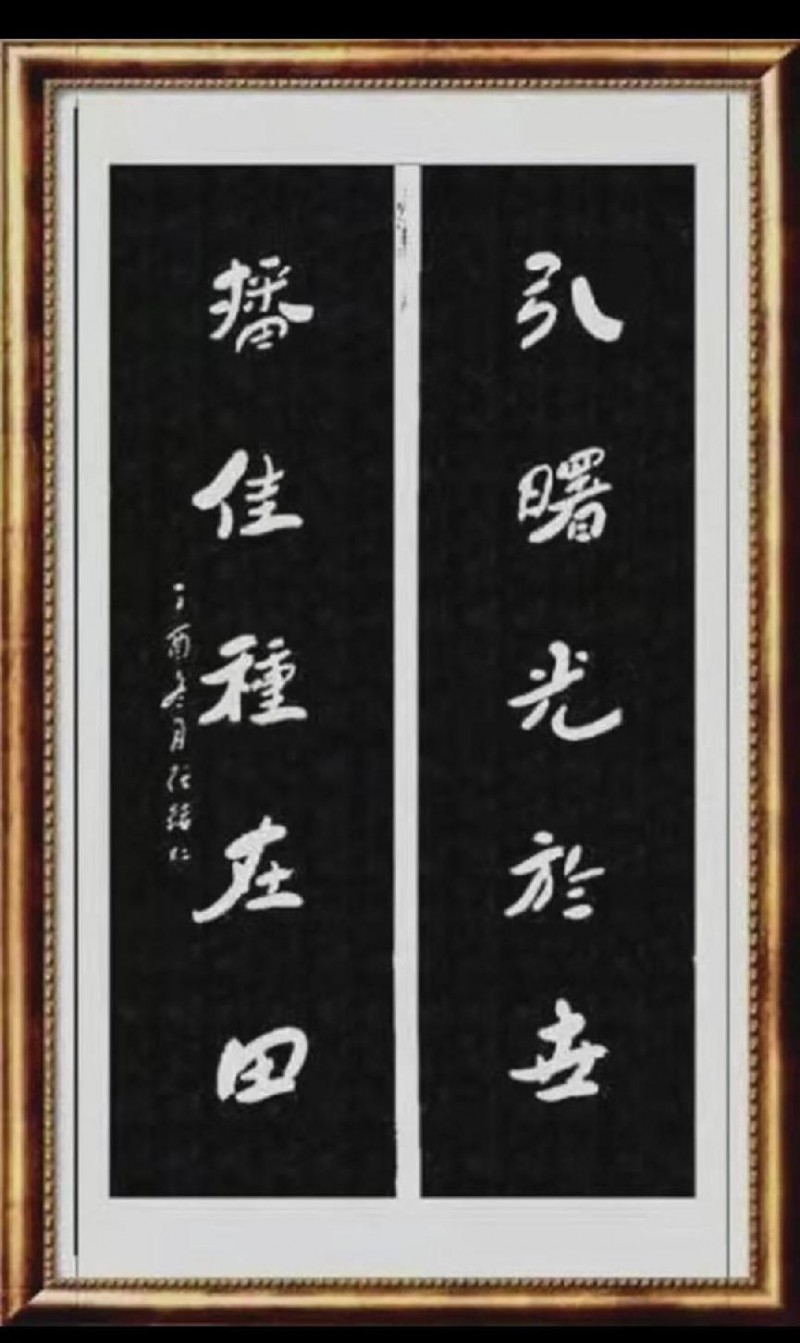 引曙光於世
播佳種在田
丁酉冬月